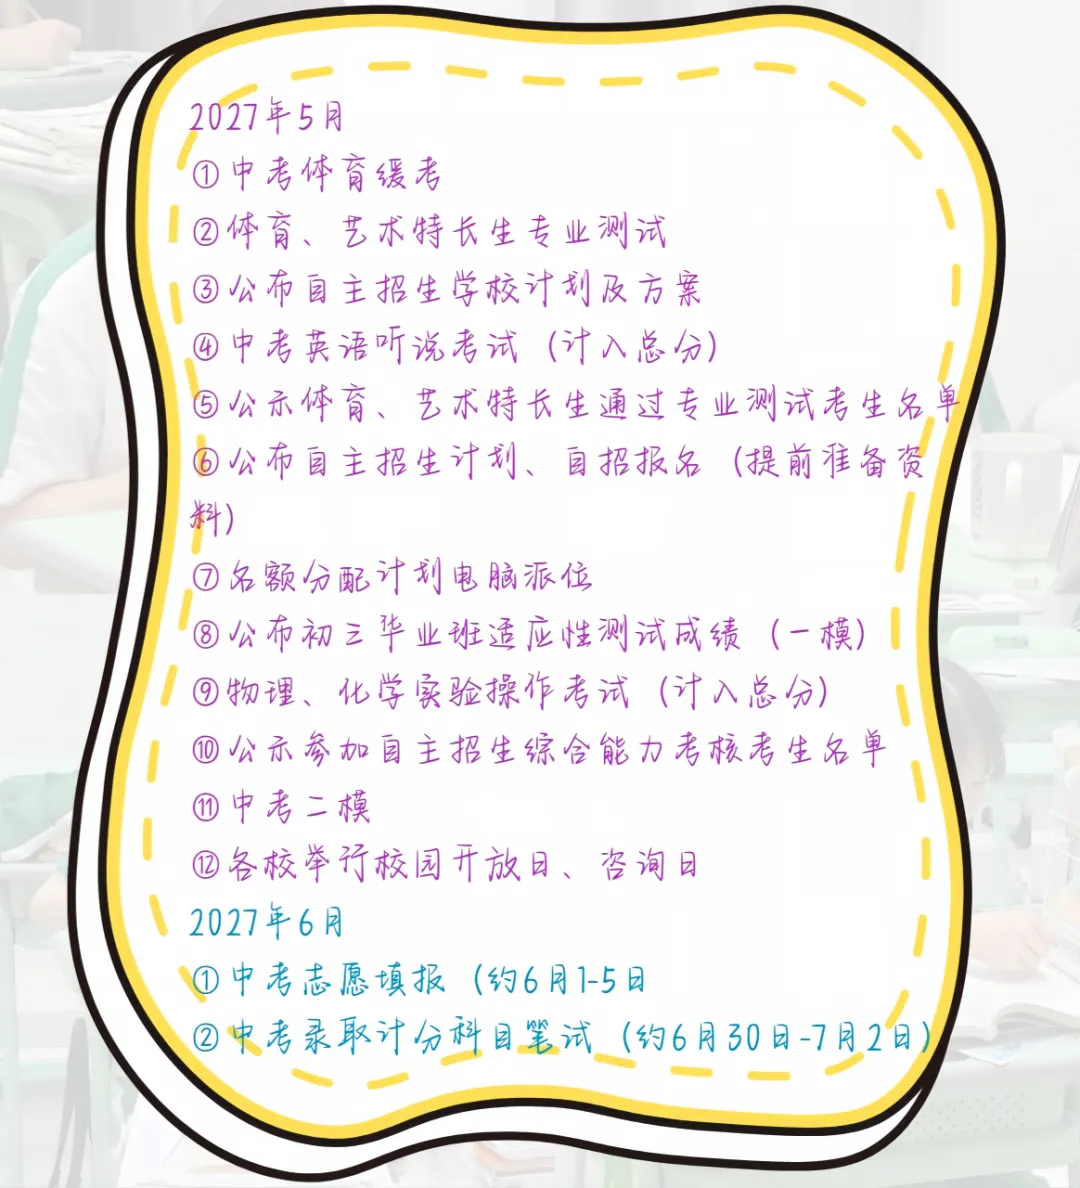 2027年5月
①中考体育缓考
②体育、艺术特长生专业测试
③公布自主招生学校计划及方案
④中考英语听说考试（计入总分）
⑤公示体育、艺术特长生通过专业测试考生名单
⑥公布自主招生计划、自招报名（提前准备资
料）
⑦名额分配计划电脑派位
⑧公布初三毕业班适应性测试成绩（一模）
⑨物理、化学实验操作考试（计入总分）
⑩公示参加自主招生综合能力考核考生名单
⑪中考二模
⑫各校举行校园开放日、咨询日
2027年6月
①中考志愿填报（约6月1-5日
②中考录取计分科目笔试（约6月30日-7月2日）